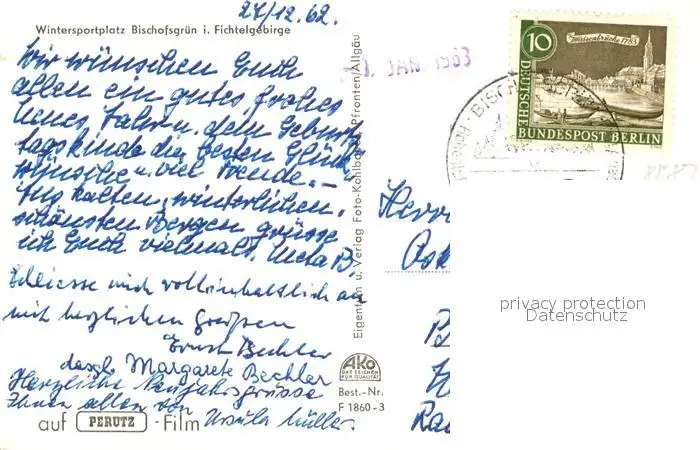 27/12.62.
Wintersportplatz Bischofsgrün i. Fichtelgebirge
Wir wünschen Euch
allen ein gutes frohes
neues Jahr u. dem Geburts-
tagskinde die besten Glück-
wünsche u. viel Freude. –
Aus kalten, winterlichen,
schönsten Bergen grüsse
ich Euch vielmals. Meta B.
Schliesse mich vollinhaltlich an
mit herzlichen Grüßen
Ernst Bechler
desgl. Margarete Bechler
Herzliche Neujahrsgrüsse
Ihnen allen von
Ursula Müller
auf PERUTZ -Film
Eigentum u. Verlag Foto-Kohlbauer Pfronten/Allgäu
AKO
DAS ZEICHEN
FÜR QUALITÄT
Best.-Nr.
F 1860-3
JAN. 1963
10
Waisenbrücke 1783
DEUTSCHE
BUNDESPOST BERLIN
Herrn
privacy protection
Datenschutz